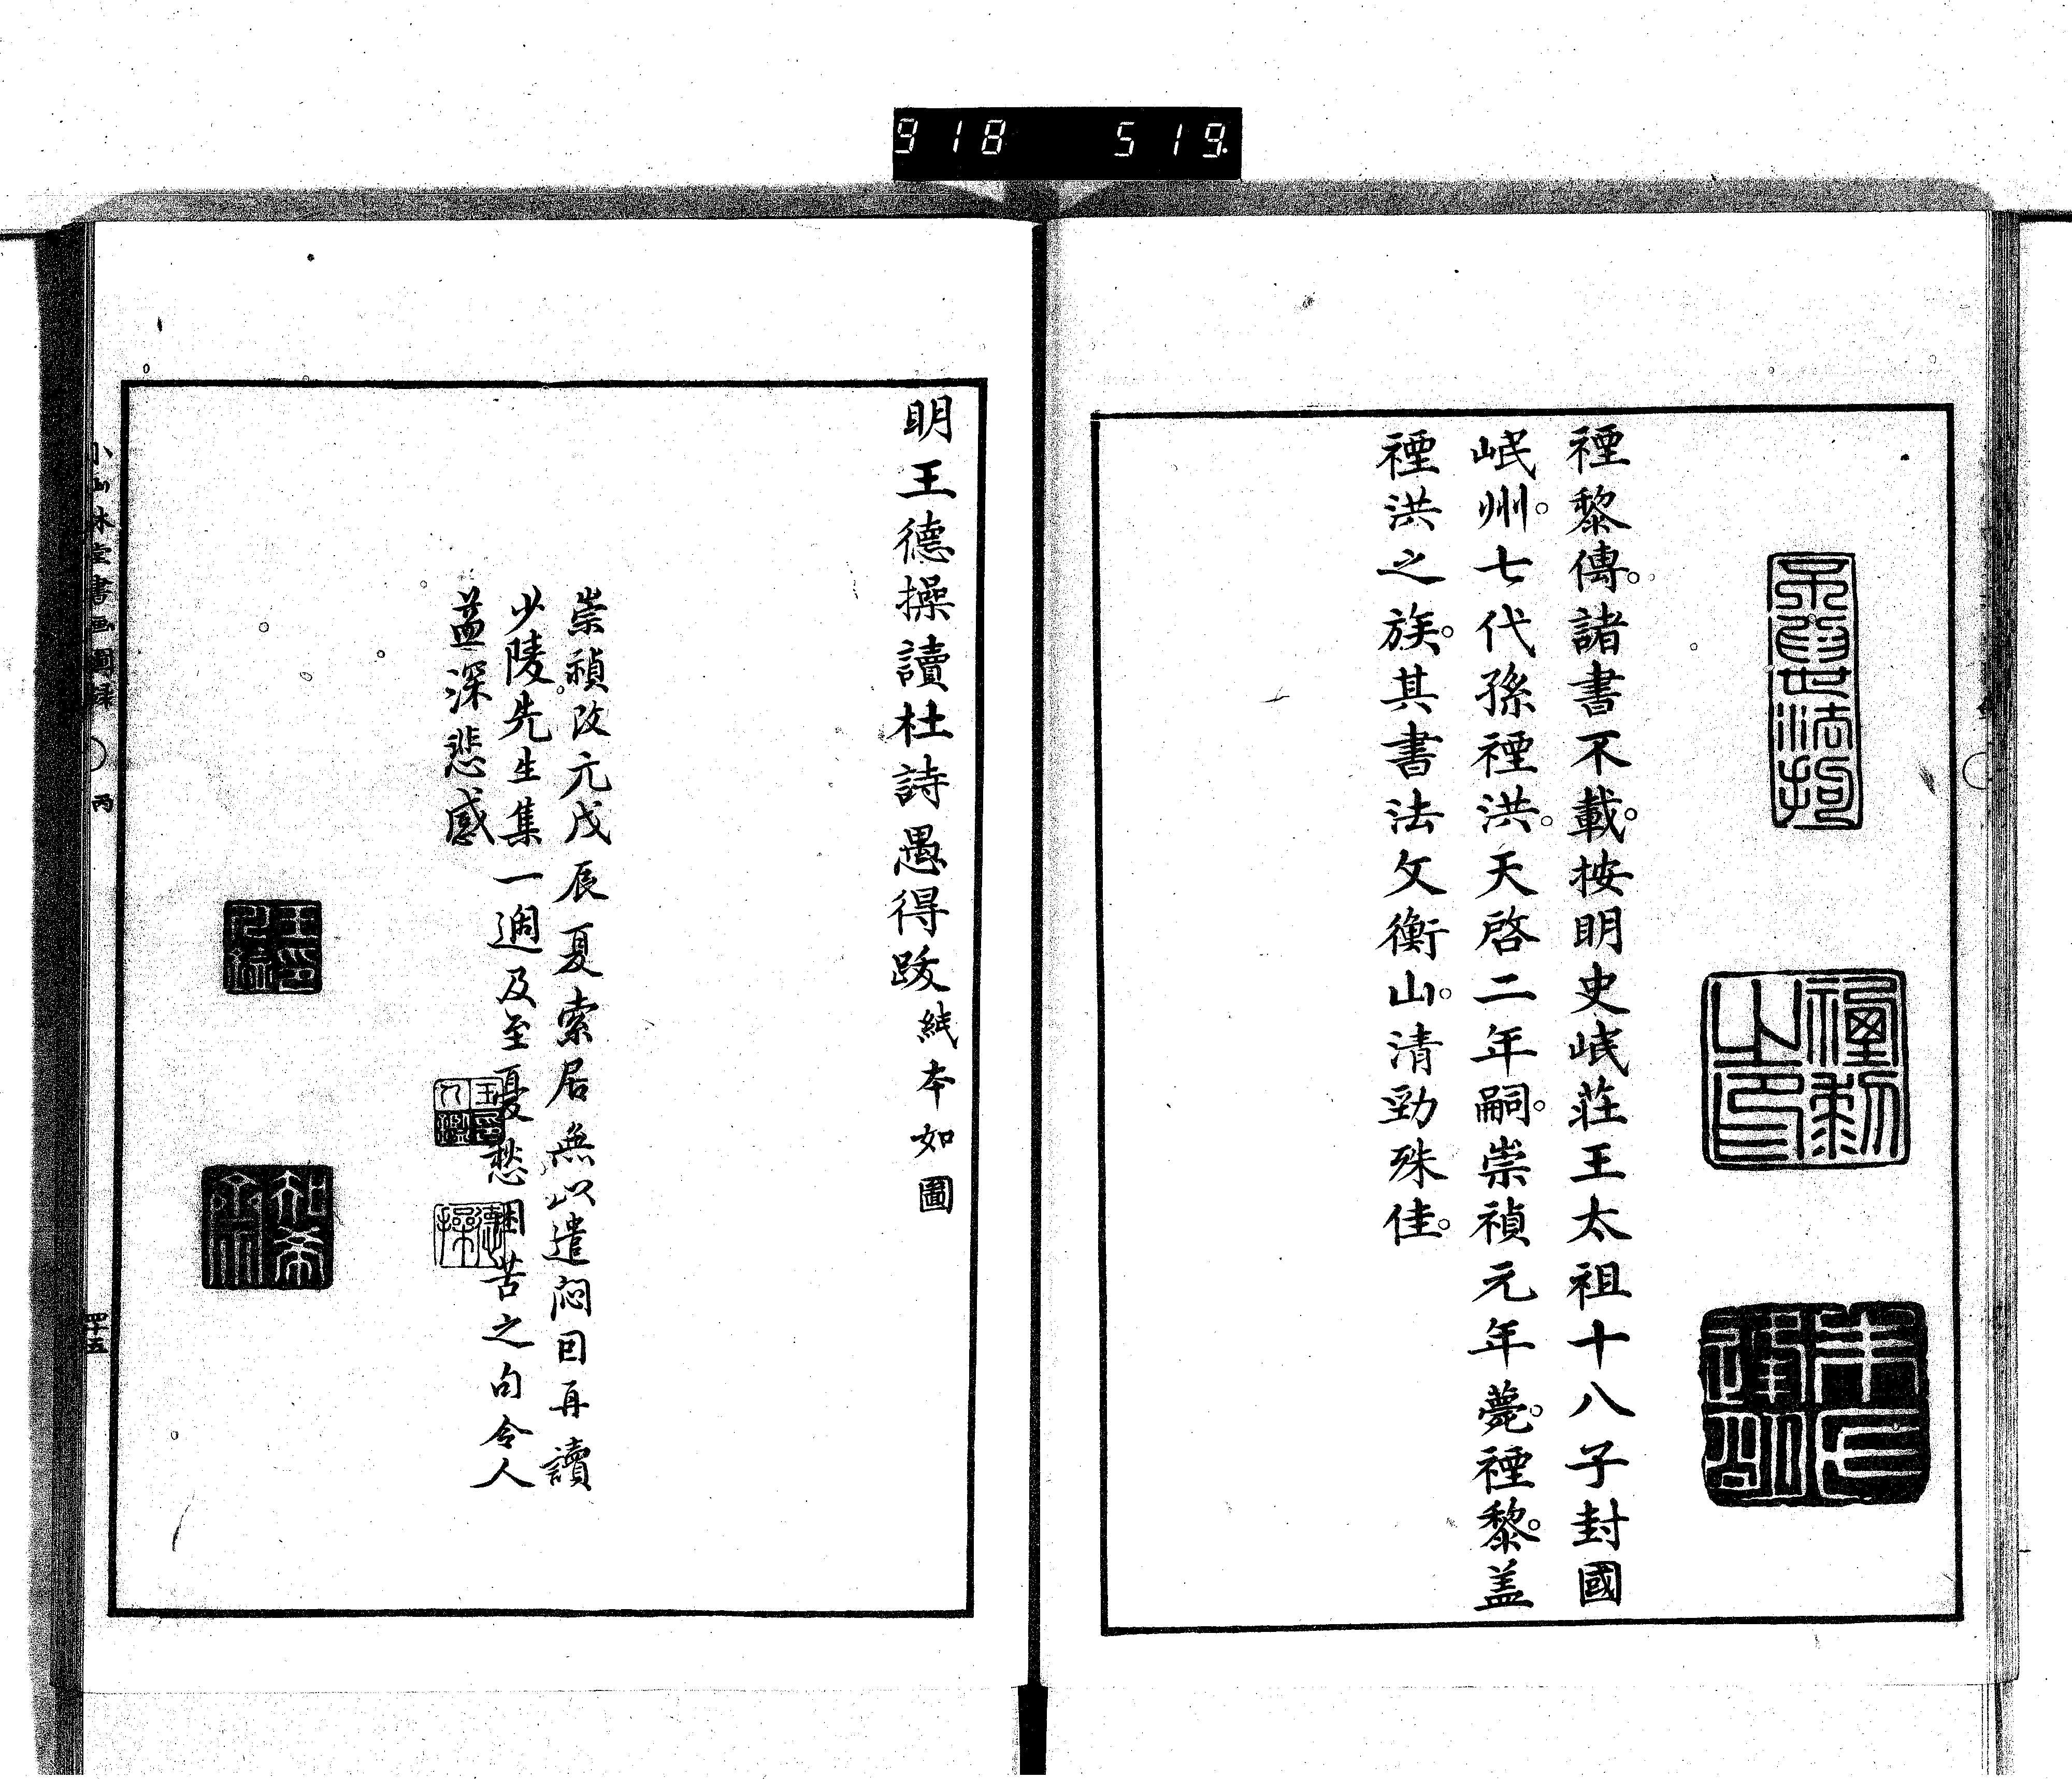 918 519
禋黎傳諸書不載按明史岷莊王太祖十八子封國
岷州七代孫禋洪天啓二年嗣崇禎元年薨禋黎盖
禋洪之族其書法文衡山清勁殊佳
明王德操讀杜詩愚得跋 紙本如圖
崇禎改元戊辰夏索居無以遣悶因再讀
少陵先生集一週及至憂愁困苦之句令人
益深悲感
德操
小山林堂書画圖録 丙 四十五